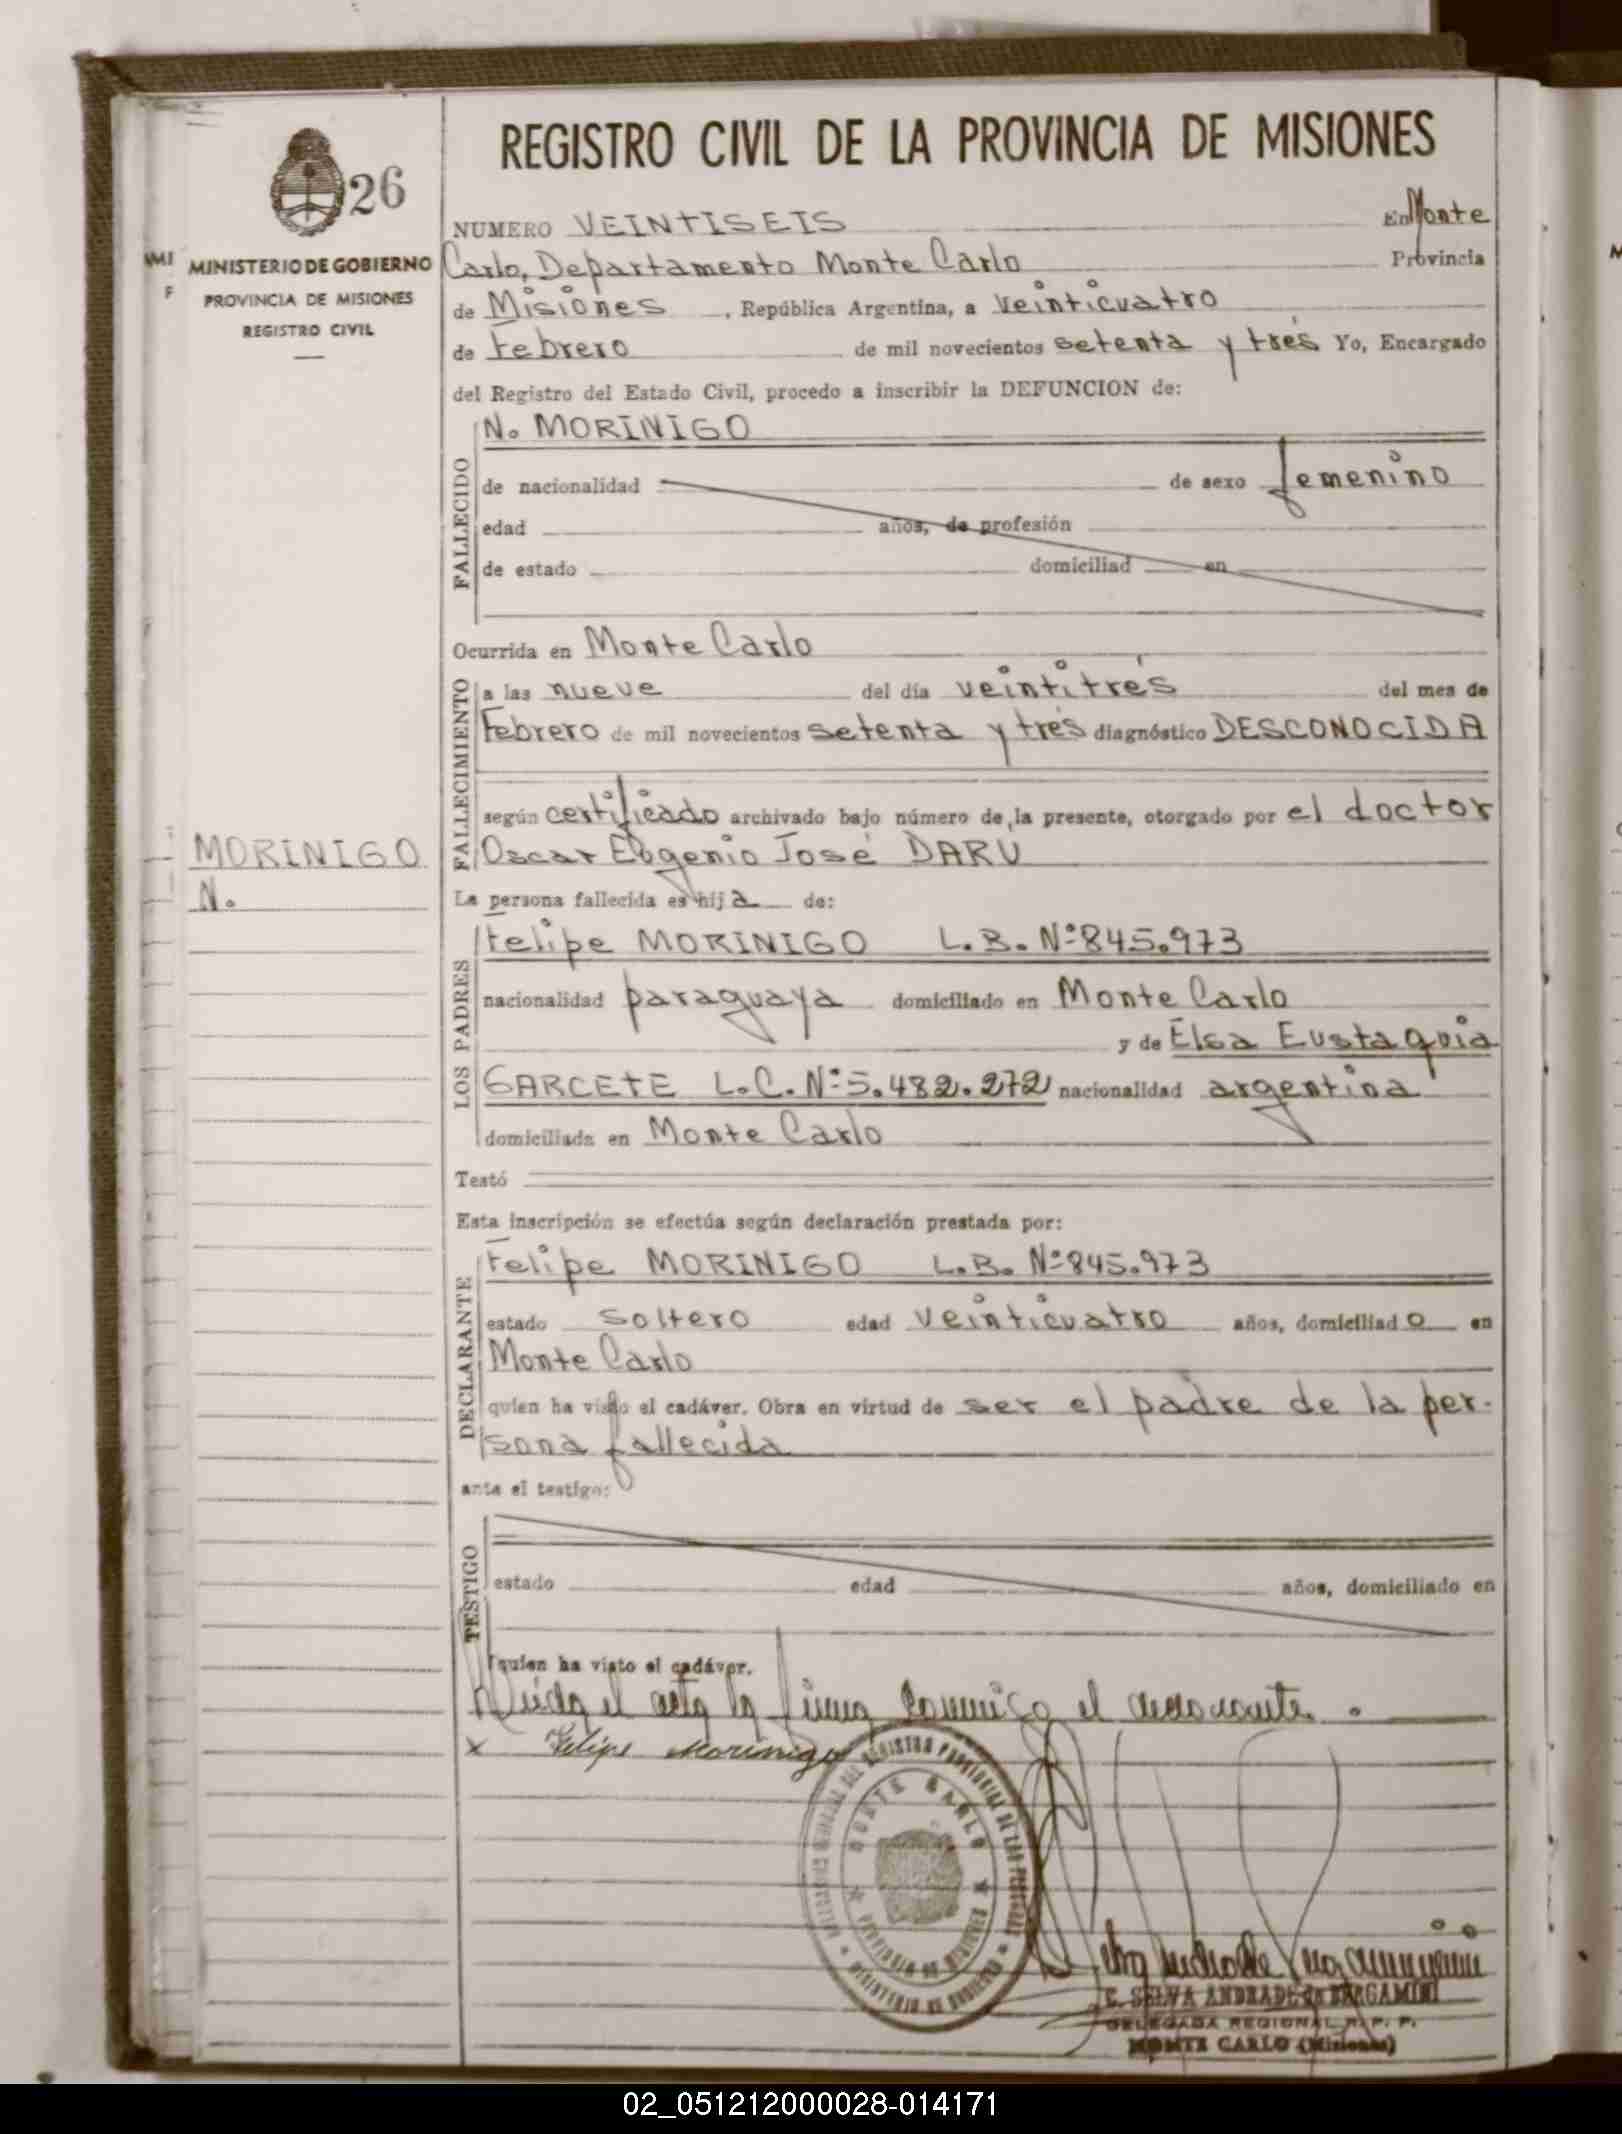 REGISTRO CIVIL DE LA PROVINCIA DE MISIONES
26
MINISTERIO DE GOBIERNO
PROVINCIA DE MISIONES
REGISTRO CIVIL
NUMERO VEINTISEIS En Monte
Carlo, Departamento Monte Carlo Provincia
de Misiones, República Argentina, a veinticuatro
de Febrero de mil novecientos setenta y trés Yo, Encargado
del Registro del Estado Civil, procedo a inscribir la DEFUNCION de:
FALLECIDO
N. MORINIGO
de nacionalidad de sexo femenino
edad años, de profesión
de estado domiciliad en
Ocurrida en Monte Carlo
FALLECIMIENTO
a las nueve del día veintitrés del mes de
Febrero de mil novecientos setenta y trés diagnóstico DESCONOCIDA
según certificado archivado bajo número de la presente, otorgado por el doctor
Oscar Eugenio José DARU
MORINIGO
N.
La persona fallecida es hija de:
LOS PADRES
Felipe MORINIGO L.B. Nº 845.973
nacionalidad paraguaya domiciliado en Monte Carlo
y de Elsa Eustaquia
GARCETE L.C. Nº 5.482.272 nacionalidad argentina
domiciliada en Monte Carlo
Testó
Esta inscripción se efectúa según declaración prestada por:
DECLARANTE
Felipe MORINIGO L.B. Nº 845.973
estado soltero edad veinticuatro años, domiciliado en
Monte Carlo
quien ha visto el cadáver. Obra en virtud de ser el padre de la per-
sona fallecida
ante el testigo:
TESTIGO
estado edad años, domiciliado en
quien ha visto el cadáver.
Leída el acta la firma conmigo el declarante.
x Felipe Morinigo
MONTE CARLO
PROVINCIA DE MISIONES
MINISTERIO DE GOBIERNO
C. SELVA ANDRADE de BERGAMINI
DELEGADA REGIONAL R. P. P.
MONTE CARLO (Misiones)
02_051212000028-014171